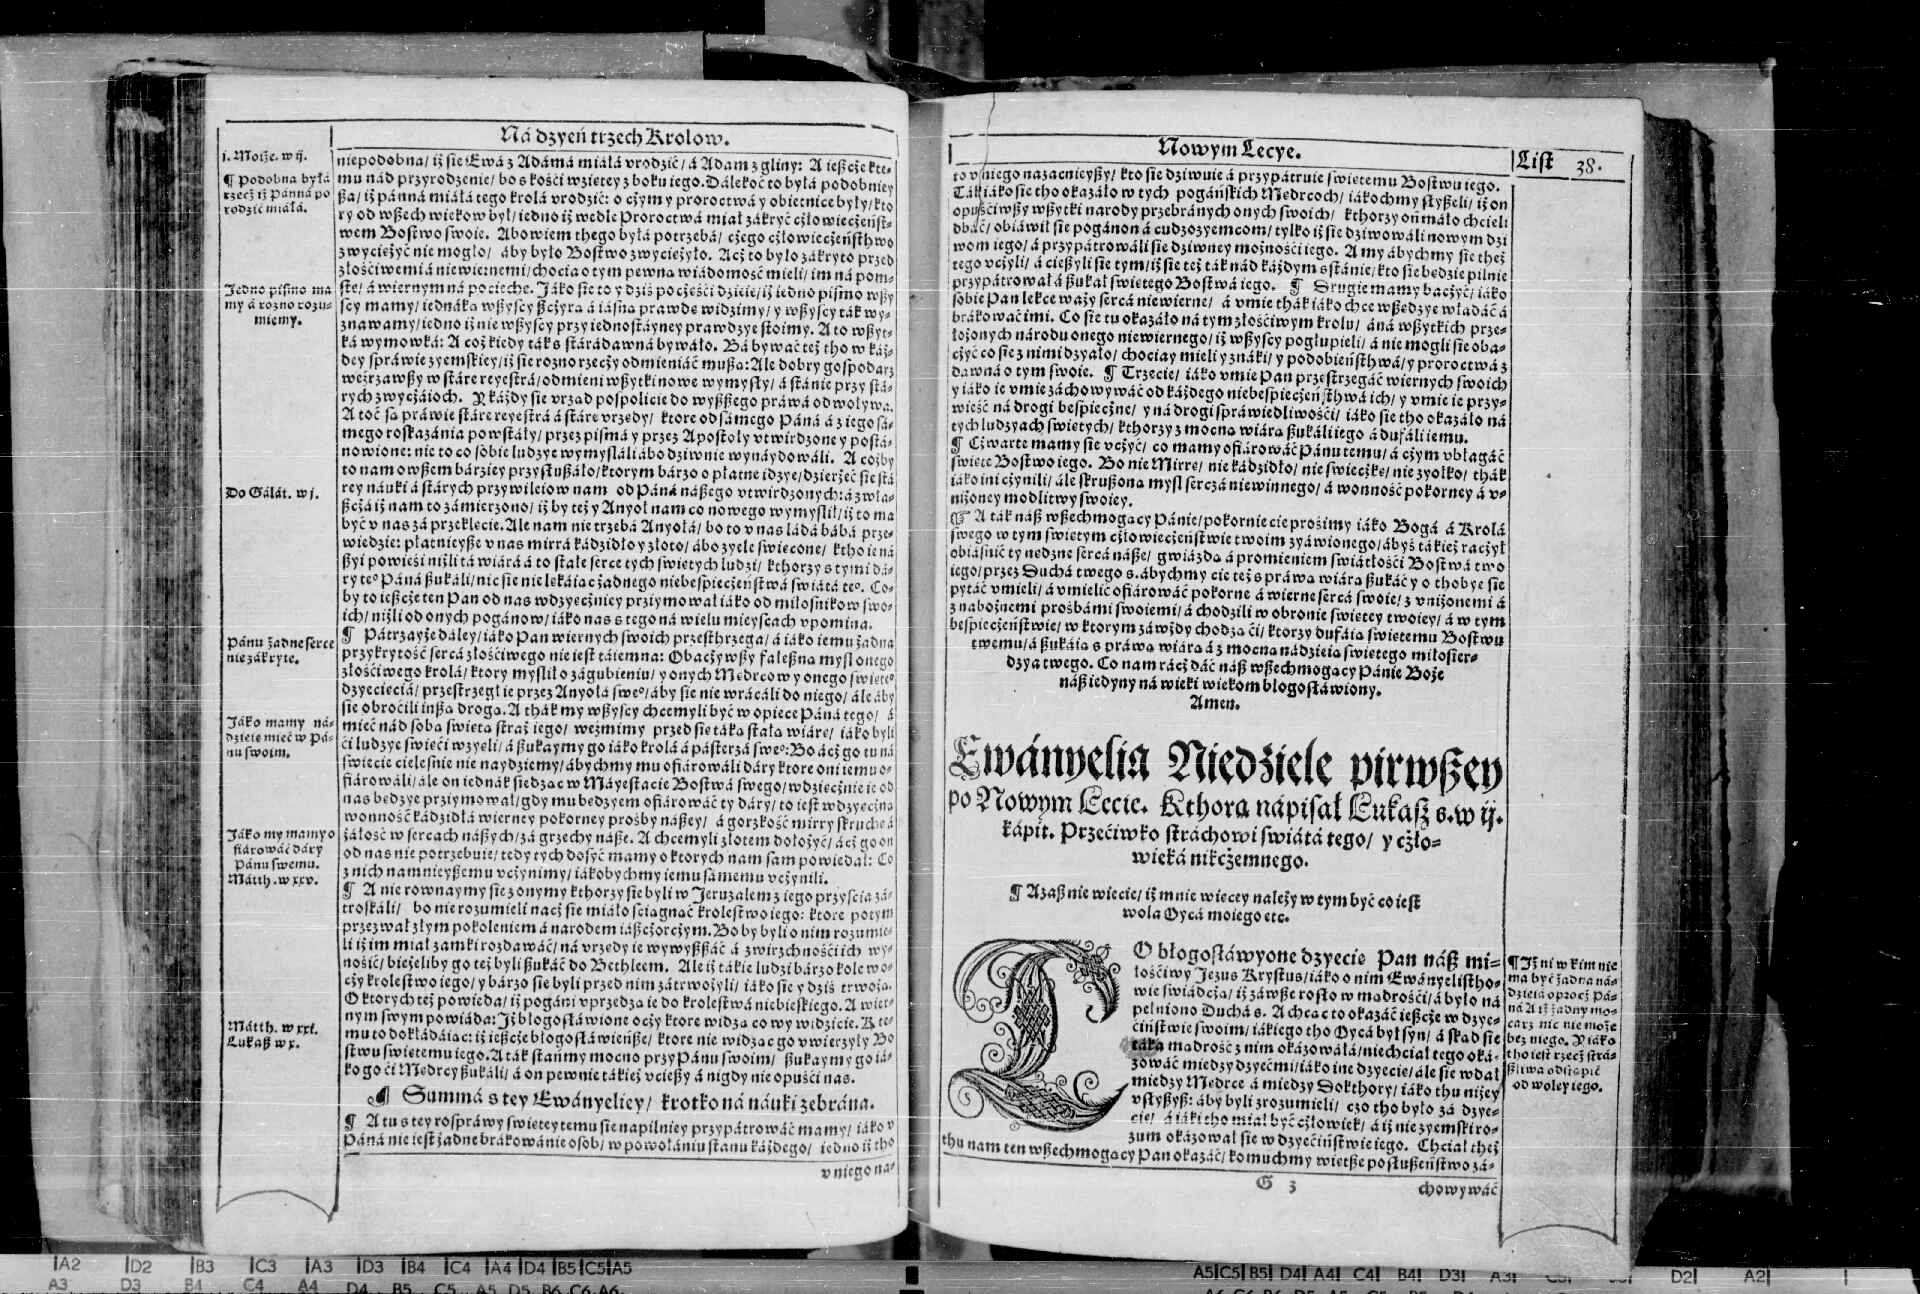 Ná dzyeń trzech Krolow.
j. Moiże. w ij.
¶ Podobna byłá
rzecż iż Pánná po
rodzić miáłá.
Jedno pismo ma
my á rozno rozu-
miemy.
Do Gálát. w j.
Pánu żadne serce
nie zákryte.
Jáko mamy ná-
dzieię mieć w Pá-
nu swoim.
Jáko my mamy o
fiárowáć dáry
Pánu swemu.
Mátth. w xxv.
Mátth. w xxi.
Lukasz w x.
niepodobna/ iż sie Ewá z Adámá miáłá vrodzić/ á Adam z gliny: A ieszcże kte-
mu nád przyrodzenie/ bo s kości wziętey z boku iego. Dálekoć to byłá podobniey
sza/ iż pánná miáłá tego krolá vrodzić: o cżym y proroctwá y obietnice były/ kto
ry od wszech wiekow był/ iedno iż wedle Proroctwá miał zákryć cżłowiecżeńst-
wem Bostwo swoie. Abowiem thego byłá potrzebá/ cżego cżłowiecżeństhwo
zwyciężyć nie mogło/ áby było Bostwo zwyciężyło. Acż to było zákryto przed
złościwemi á niewiernemi/ chocia o tym pewną wiádomość mieli/ im ná pom-
stę/ á wiernym ná pociechę. Jáko sie to y dziś pocżęści dzieie/ iż iedno pismo wszy
scy mamy/ iednáką wszyscy szcżyrą á iásną prawdę widzimy/ y wszyscy ták wy-
znawamy/ iedno iż nie wszyscy przy iednostáyney prawdzye stoimy. A to wszyt-
ká wymowká: A coż kiedy ták s stárádawná bywáło. Bá bywáć też tho w káż-
dey spráwie zyemskiey/ iż sie rozno rzecży odmieniáć muszą: Ale dobry gospodarz
weźrzawszy w stáre reyestrá/ odmieni wszytki nowe wymysły/ á stánie przy stá-
rych zwycżáioch. Y káżdy sie vrząd pospolicie do wyższego práwá odwoływa.
A toć są práwie stáre reyestrá á stáre vrzędy/ ktore od sámego Páná á z iego sá-
mego roskazánia powstáły/ przez pismá y przez Apostoły vtwirdzone y postá-
nowione: nie to co sobie ludzye wymyśláli ábo dziwnie wynáydowáli. A cożby
to nam owszem bárziey przystuszáło/ ktorym bárzo o płatne idzye/ dzierżeć sie stá
rey náuki á stárych przywileiow nam od Páná nászego vtwirdzonych: á zwła-
szcżá iż nam to zámierzono/ iż by też y Anyoł nam co nowego wymyślił/ iż to ma
być v nas zá przeklęcie. Ale nam nie trzebá Anyołá/ bo to v nas ládá bábá prze-
wiedzie: płatnieysze v nas mirrá kádzidło y złoto/ ábo zyele święcone/ ktho ie ná
szyi powiesi niżli tá wiárá á to stałe serce tych świętych ludzi/ kthorzy s tymi dá-
ry teº Páná szukáli/ nic sie nie lękáiąc żadnego niebespiecżeństwá świátá teº. Co-
by to ieszcże ten Pan od nas wdzyecżniey przyimował iáko od miłośnikow swo-
ich/ niżli od onych pogánow/ iáko nas s tego ná wielu mieyscach vpomina.
¶ Pátrzayże dáley/ iáko Pan wiernych swoich przesthrzega/ á iáko iemu żadna
przykrytość sercá złościwego nie iest táiemna: Obacżywszy fáleszną myśl onego
złościwego krolá/ ktory myślił o zágubieniu/ y onych Mędrcow y onego święteº
dzyeciecia/ przestrzegł ie przez Anyołá sweº/ áby sie nie wracáli do niego/ ále áby
sie obrocili inszą drogą. A thák my wszyscy chcemyli być w opiece Páná tego/ á
mieć nád sobą świętą straż iego/ weźmimy przed sie táką stałą wiárę/ iáko byli
ci ludzye święci wzyęli/ á szukaymy go iáko krolá á pásterzá sweº: Bo ácż go tu ná
świecie cieleśnie nie naydziemy/ ábychmy mu ofiárowáli dáry ktore oni iemu o-
fiárowáli/ ále on iednák siedząc w Máyestacie Bostwá swego/ wdzięcżnie ie od
nas będzye przyimował/ gdy mu będzyem ofiárowáć ty dáry/ to iest wdzyęcżną
wonność kádzidłá wierney pokorney prośby nászey/ á gorzkość mirry skruchę á
żáłość w sercach nászych/ zá grzechy násze. A chcemyli złotem dołożyć/ ácż go on
od nas nie potrzebuie/ tedy tych dosyć mamy o ktorych nam sam powiedał: Co
z nich namnieyszemu vcżynimy/ iákobychmy iemu sámemu vcżynili.
¶ A nie rownaymy sie z onymy kthorzy sie byli w Jeruzalem z iego przyścia zá-
troskáli/ bo nie rozumieli nacż sie miáło ściągnąć krolestwo iego: ktore potym
przezwał złym pokoleniem á narodem iászcżorcżym. Bo by byli o nim rozumie-
li iż im miał zamki rozdawáć/ ná vrzędy ie wywyszszáć á zwirzchności ich wy-
nosić/ bieżeliby go też byli szukáć do Bethleem. Ale iż tákie ludzi bárzo kole w o-
cży krolestwo iego/ y bárzo sie byli przed nim zátrwożyli/ iáko sie y dziś trwożą.
O ktorych też powieda/ iż pogáni vprzedzą ie do krolestwá niebieskiego. A wier-
nym swym powiáda: Iż błogosłáwione ocży ktore widzą co wy widzicie. K te-
mu to dokłádáiąc: iż ieszcże błogosłáwieńsze/ ktore nie widząc go vwierzyły Bo
stwu świętemu iego. A ták stáńmy mocno przy Pánu swoim/ szukaymy go iá-
ko go ci Mędrcy szukáli/ á on pewnie tákież vcieszy á nigdy nie opuści nas.
¶ Summá s tey Ewányeliey/ krotko ná náuki zebrána.
¶ A tu s tey rosprawy świętey temu sie napilniey przypátrowáć mamy/ iáko v
Páná nie iest żadne brákowánie osob/ w powołániu stanu káżdego/ iedno iż tho
v niego na-
Nowym Lecye.
List 38.
to v niego nazacnieyszy/ kto sie dziwuie á przypátruie świętemu Bostwu iego.
Ták iáko sie tho okazáło w tych pogáńskich Mędrcoch/ iákochmy słyszeli/ iż on
opuściwszy wszytki narody przebránych onych swoich/ kthorzy oń máło chcieli
dbáć/ obiáwił sie pogánon á cudzozyemcom/ tylko iż sie dziwowáli nowym dzi
wom iego/ á przypátrowáli sie dziwney możności iego. A my ábychmy sie też
tego vcżyli/ á cieszyli sie tym/ iż sie też ták nád káżdym sstánie/ kto sie będzie pilnie
przypátrował á szukał świętego Bostwá iego. ¶ Drugie mamy bacżyć/ iáko
sobie Pan lekce waży sercá niewierne/ á vmie thák iáko chce wszędzye władáć á
brákowáć imi. Co sie tu okazáło ná tym złościwym krolu/ áná wszytkich prze-
łożonych národu onego niewiernego/ iż wszyscy pogłupieli/ á nie mogli sie oba-
cżyć co sie z nimi dzyało/ chociay mieli y znáki/ y podobieństhwá/ y proroctwá z
dawná o tym swoie. ¶ Trzecie/ iáko vmie Pan przestrzegáć wiernych swoich
y iáko ie vmie záchowywáć od káżdego niebespiecżeństhwá ich/ y vmie ie przy-
wieść ná drogi bespiecżne/ y ná drogi spráwiedliwości/ iáko sie tho okazáło ná
tych ludzyach świętych/ kthorzy z mocną wiárą szukáli iego á dufáli iemu.
¶ Cżwarte mamy sie vcżyć/ co mamy ofiárowáć Pánu temu/ á cżym vbłagáć
święte Bostwo iego. Bo nie Mirrę/ nie kádzidło/ nie świecżkę/ nie zyołko/ thák
iáko ini cżynili/ ále skruszoną myśl serczá niewinnego/ á wonność pokorney á v-
niżoney modlitwy swoiey.
☞ A ták nász wszechmogący Pánie/ pokornie cię prosimy iáko Bogá á Krolá
swego w tym świętym cżłowiecżeństwie twoim zyáwionego/ ábyś tákież racżył
obiáśnić ty nędzne sercá násze/ gwiazdą á promieniem świátłości Bostwá two
iego/ przez Duchá twego s. ábychmy cię też s práwą wiárą szukáć y o thobye sie
pytáć vmieli/ á vmieli ć ofiárowáć pokorne á wierne sercá swoie/ z vniżonemi á
z nabożnemi prośbámi swoiemi/ á chodzili w obronie świętey twoiey/ á w tym
bespiecżeństwie/ w ktorym záwżdy chodzą ci/ ktorzy dufáią świętemu Bostwu
twemu/ á szukáią s práwą wiárą á z mocną nádzieią świętego miłosier-
dzya twego. Co nam racż dáć nász wszechmogący Pánie Boże
nász iedyny ná wieki wiekom błogosłáwiony.
Amen.
Ewányelia Niedziele pirwszey
po Nowym Lecie. Kthorą nápisał Lukasz s. w ij.
kápit. Przećiwko stráchowi świátá tego/ y cżło-
wieká nikcżemnego.
¶ Azasz nie wiecie/ iż mnie więcey należy w tym być co iest
wola Oycá moiego etc.
TO błogosłáwyone dzyecię Pan nász mi-
łościwy Jezus Krystus/ iáko o nim Ewányelistho-
wie świádcżą/ iż záwsze rosło w mądrości/ á było ná
pełniono Duchá s. A chcąc to okazáć ieszcże w dzye-
ciństwie swoim/ iákiego tho Oycá był syn/ á skąd sie
táka mądrość z nim okázowáłá/ niechciał tego oká-
zowáć między dzyećmi/ iáko ine dzyecię/ ále sie wdał
między Mędrce á między Dokthory/ iáko thu niżey
vsłyszysz: áby byli zrozumieli/ czo tho było zá dzye-
cię/ á iáki tho miał być cżłowiek/ á iż nie zyemski ro-
zum okázował sie w dzyeciństwie iego. Chciał theż
thu nam ten wszechmogący Pan okazáć/ komuchmy więtsze posłuszeństwo zá-
¶ Iż ni w kim nie
ma być żadna ná-
dzieiá oprocż Pá-
ná A iż żadny mo-
carz nic nie może
bez niego. Y iáko
tho iest rzecż strá-
szliwa odstąpić
od woley iego.
G 3
chowywáć
A2 D2 B3 C3 A3 D3 B4 C4 A4 D4 B5 C5 A5
A3 D3 B4 C4 A4 D4 B5 C5 A5 D5 B6 C6 A6
A5 C5 B5 D4 A4 C4 B4 D3 A3 D2 A2